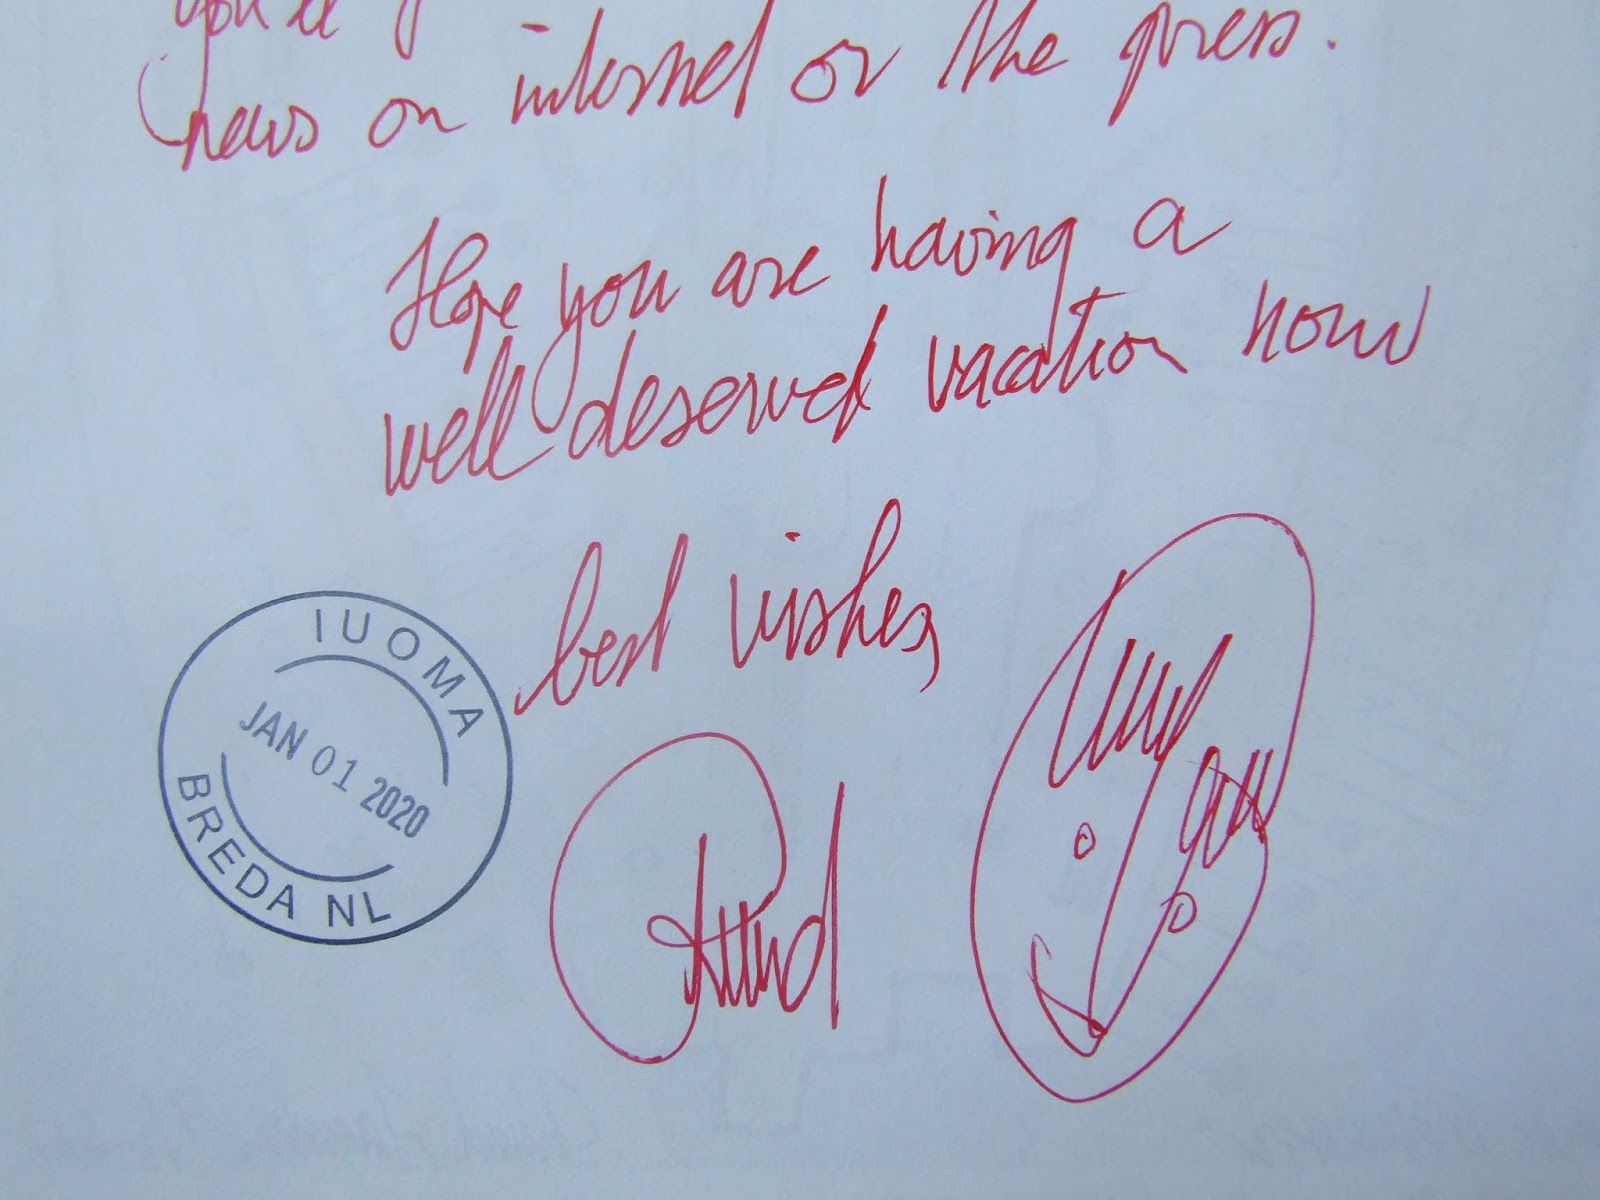 you'll
news on internet or the press.
Hope you are having a
well deserved vacation now
best wishes,
IUOMA
JAN 01 2020
BREDA NL
Ruud